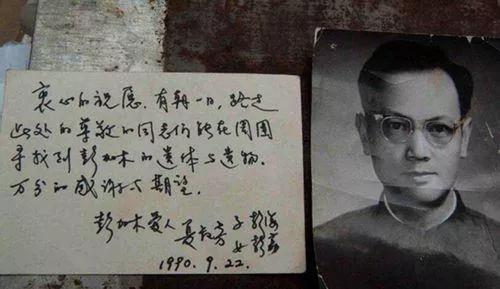 衷心的祝愿，有朝一日，路过
此处的尊敬的同志们能在周围
寻找到彭加木的遗体与遗物．
万分的感谢与期望．
彭加木爱人 夏叔芳 子 彭海
女 彭荔
1990.9.22.